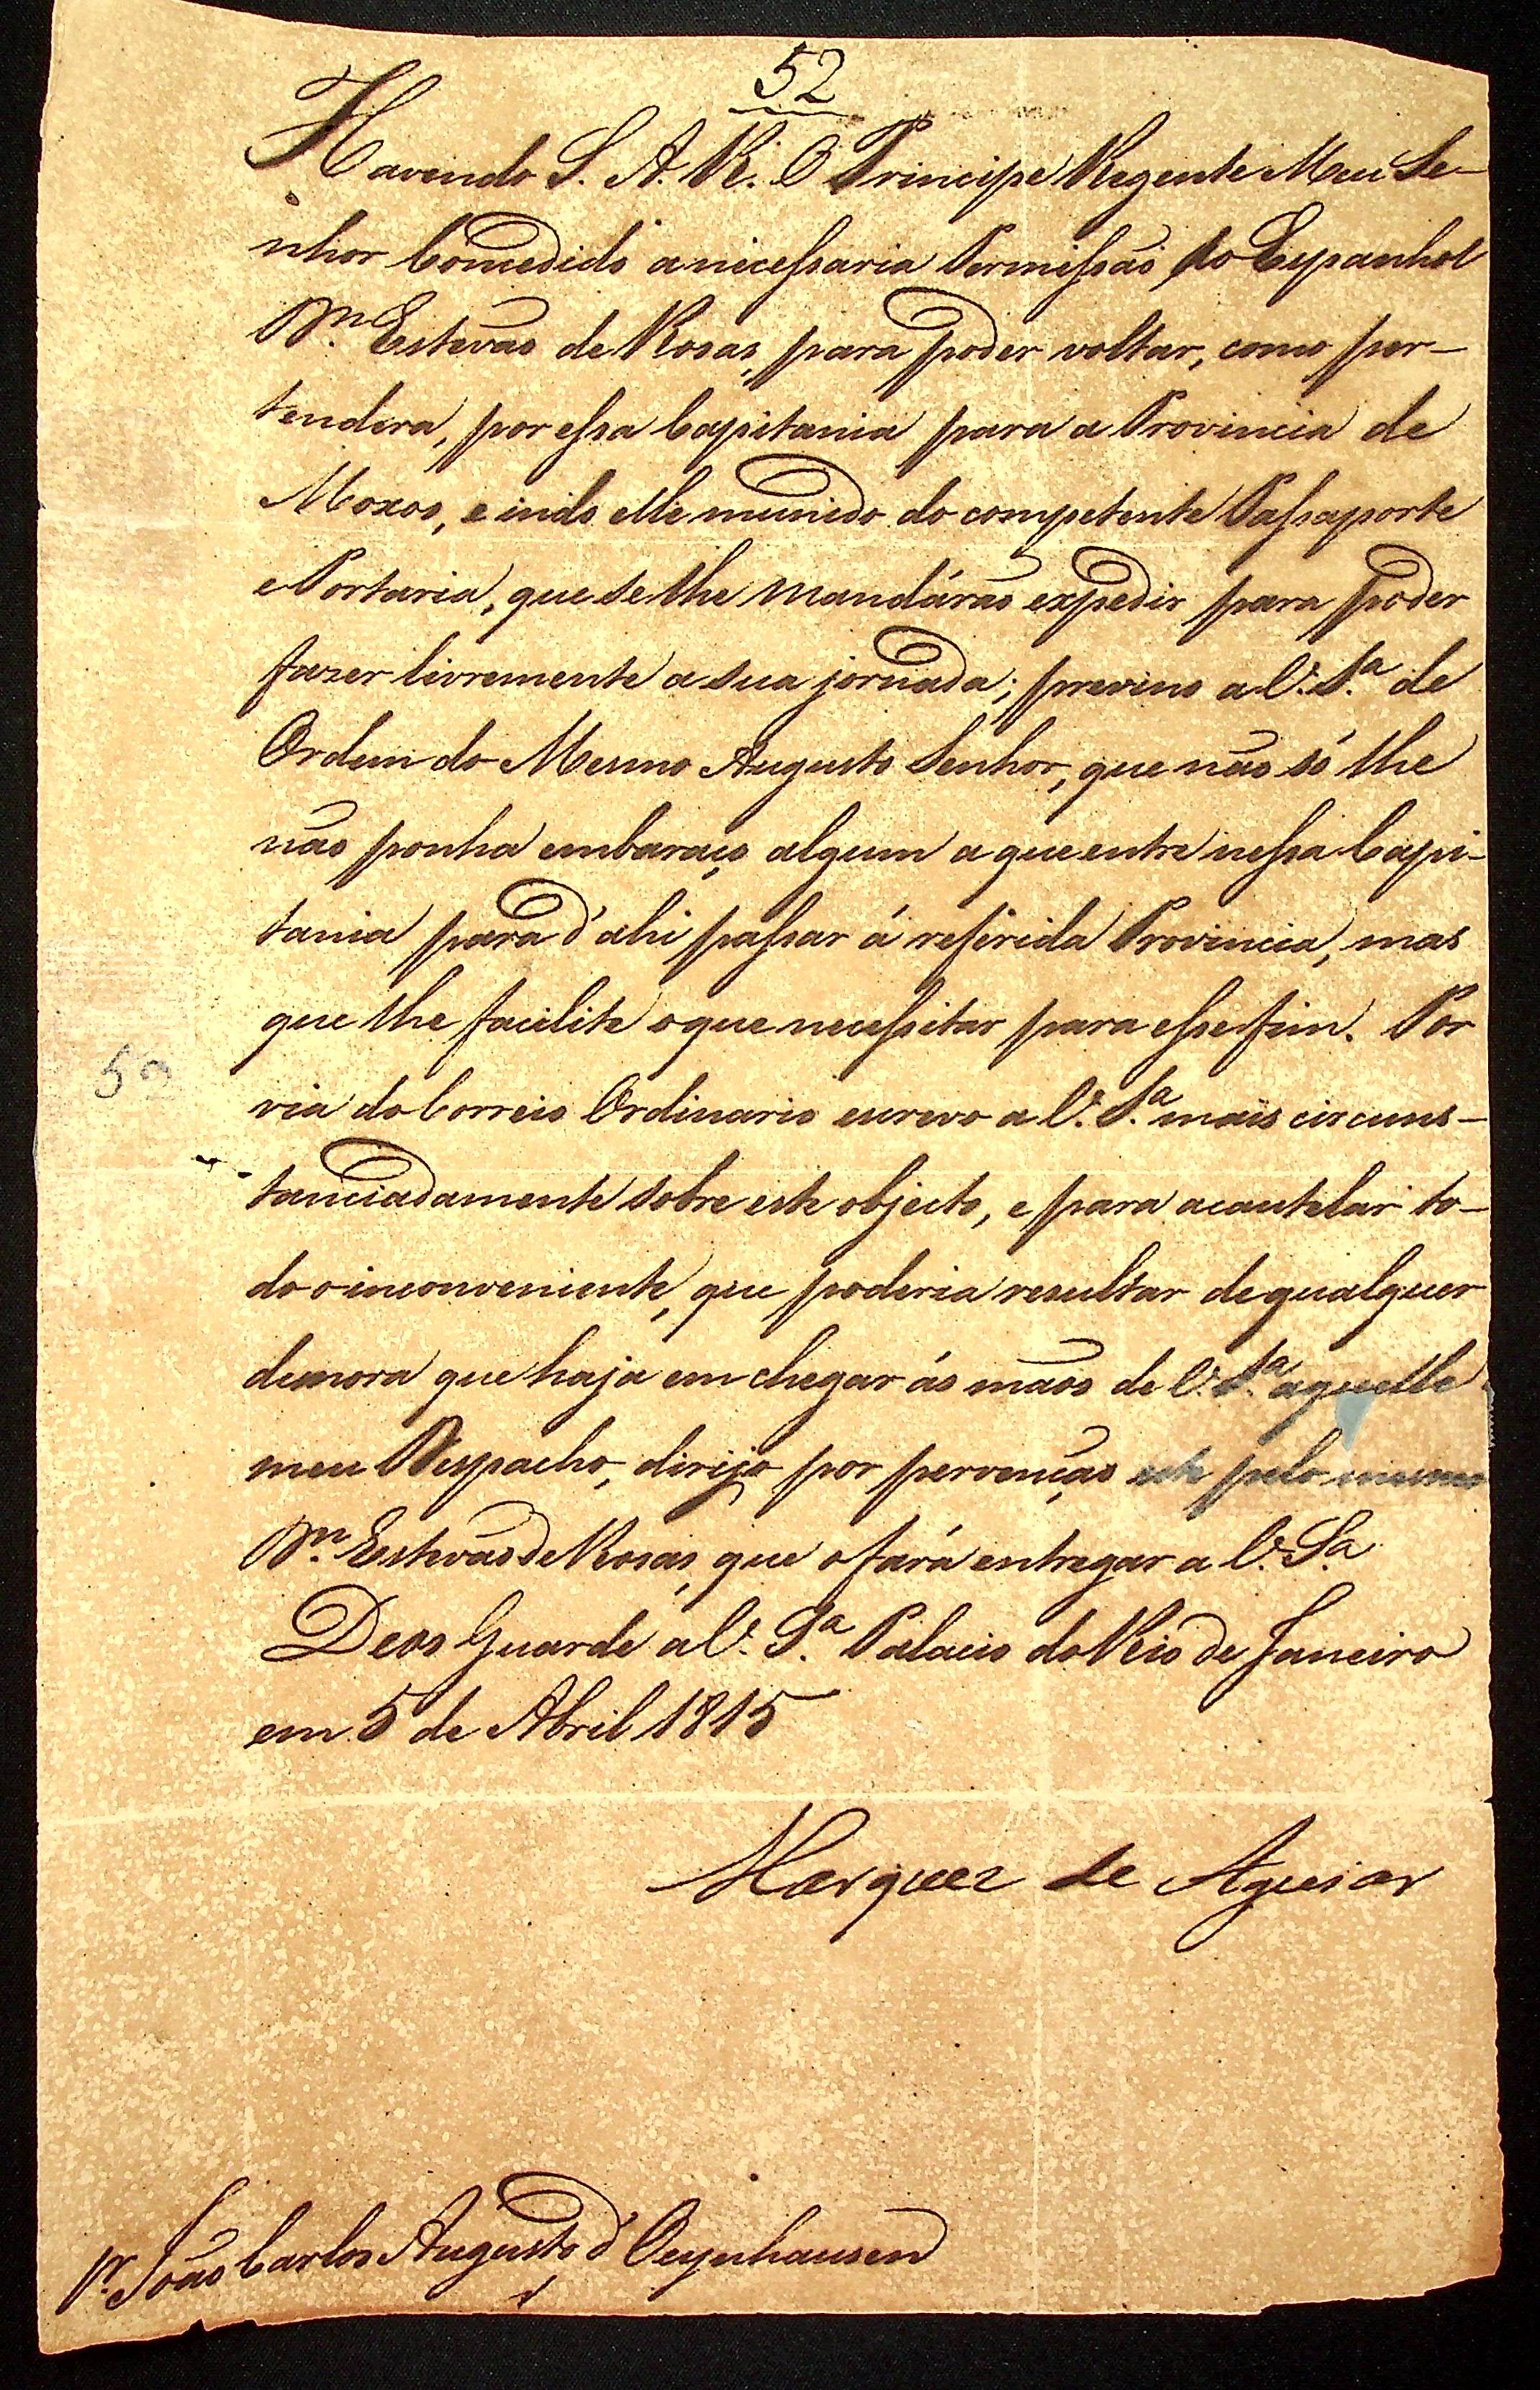 52
Havendo S. A. R. O Principe Regente Meu Se-
nhor Concedido a necessaria Permissaõ ao Espanhol
Dn. Estevaõ de Rosas, para poder voltar, como per-
tendera, por essa Capitania para a Provincia de
Moxos, e indo elle munido do competente Passaporte
e Portaria, que se lhe mandáraõ expedir para poder
fazer livremente a sua jornada; previno a V. S.ª de
Ordem do Mesmo Augusto Senhor, que naõ só lhe
naõ ponha embaraço algum a que entre nessa Capi-
tania para d'ahi passar á referida Provincia, mas
que lhe facilite o que necessitar para esse fim. Por
via do Correio Ordinario escrevo a V. S.ª mais circuns-
tanciadamente sobre este objecto, e para acautelar to-
do o inconveniente, que poderia resultar de qualquer
demora que haja em chegar ás maõs de V. S.ª aquelle
meu Despacho, dirijo por pervençaõ este pelo mesmo
Dn. Estevaõ de Rosas, que o fará entregar a V. S.ª
Deos Guarde a V. S.ª Palacio do Rio de Janeiro
em 5 de Abril 1815
Marquez de Aguiar
Sr. Joaõ Carlos Augusto d'Oeynhausen